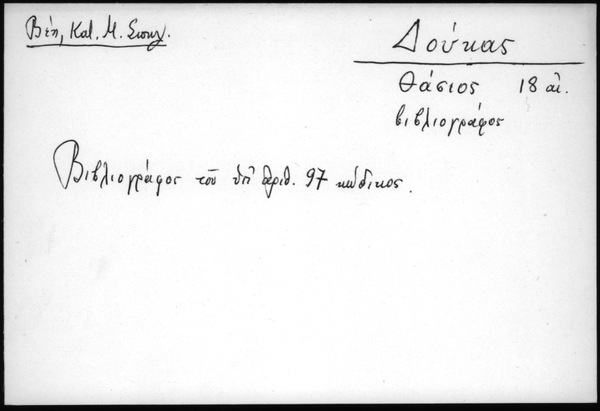 Βέη, Κατ. Μ.
Δούκας
Θάσιος 18 αἰ.
βιβλιογράφος
Βιβλιογράφος τοῦ ὑπ' ἀριθ. 97 κώδικος.